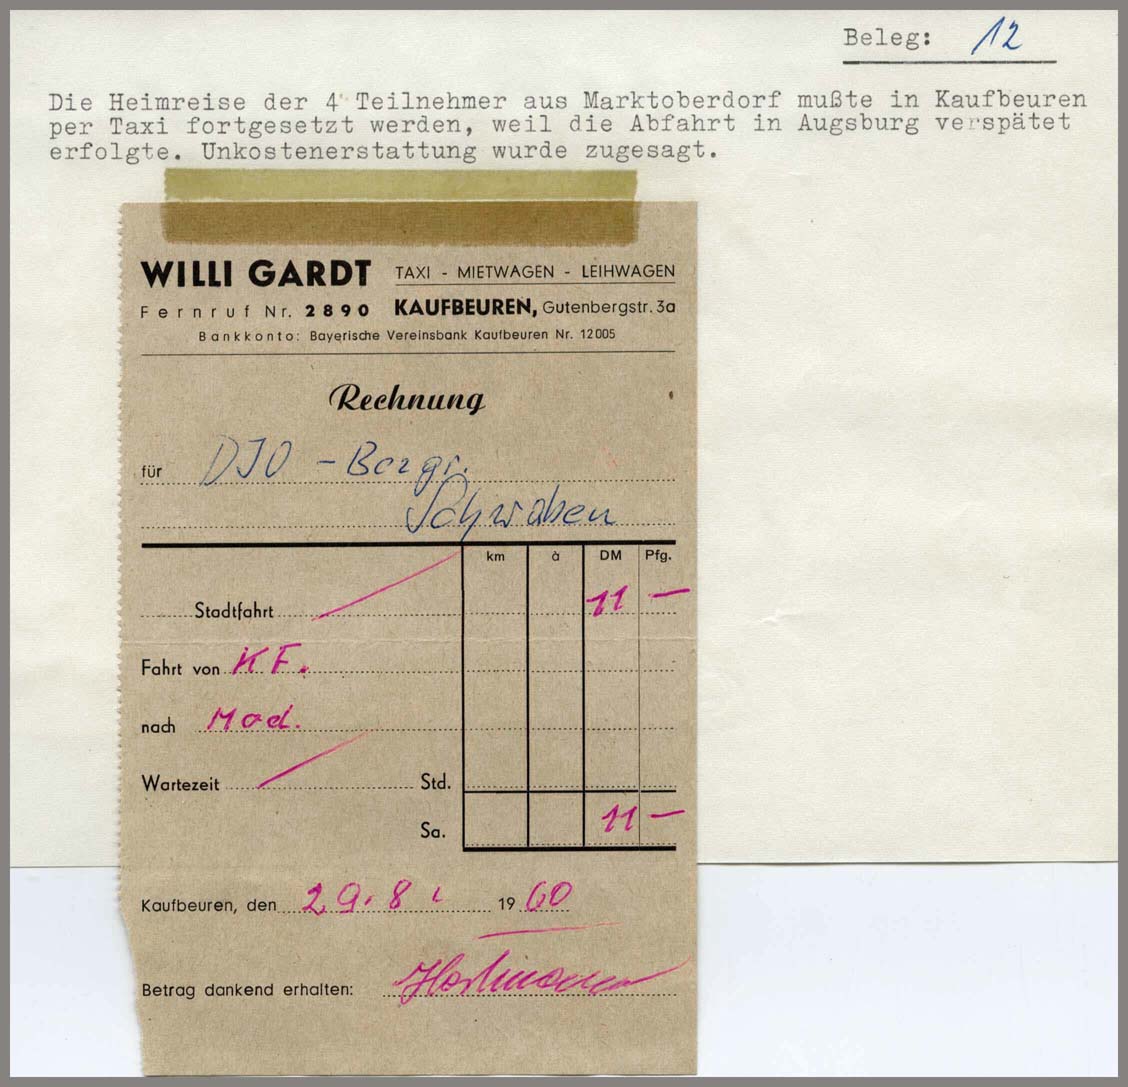 Beleg: 12
Die Heimreise der 4 Teilnehmer aus Marktoberdorf mußte in Kaufbeuren
per Taxi fortgesetzt werden, weil die Abfahrt in Augsburg verspätet
erfolgte. Unkostenerstattung wurde zugesagt.
WILLI GARDT TAXI - MIETWAGEN - LEIHWAGEN
Fernruf Nr. 2890 KAUFBEUREN, Gutenbergstr. 3a
Bankkonto: Bayerische Vereinsbank Kaufbeuren Nr. 12005
Rechnung
für DJO - Bezgr.
Schwaben
km à DM Pfg.
Stadtfahrt 11 —
Fahrt von KF.
nach Mod.
Wartezeit Std.
Sa. 11 —
Kaufbeuren, den 29. 8. 1960
Betrag dankend erhalten: